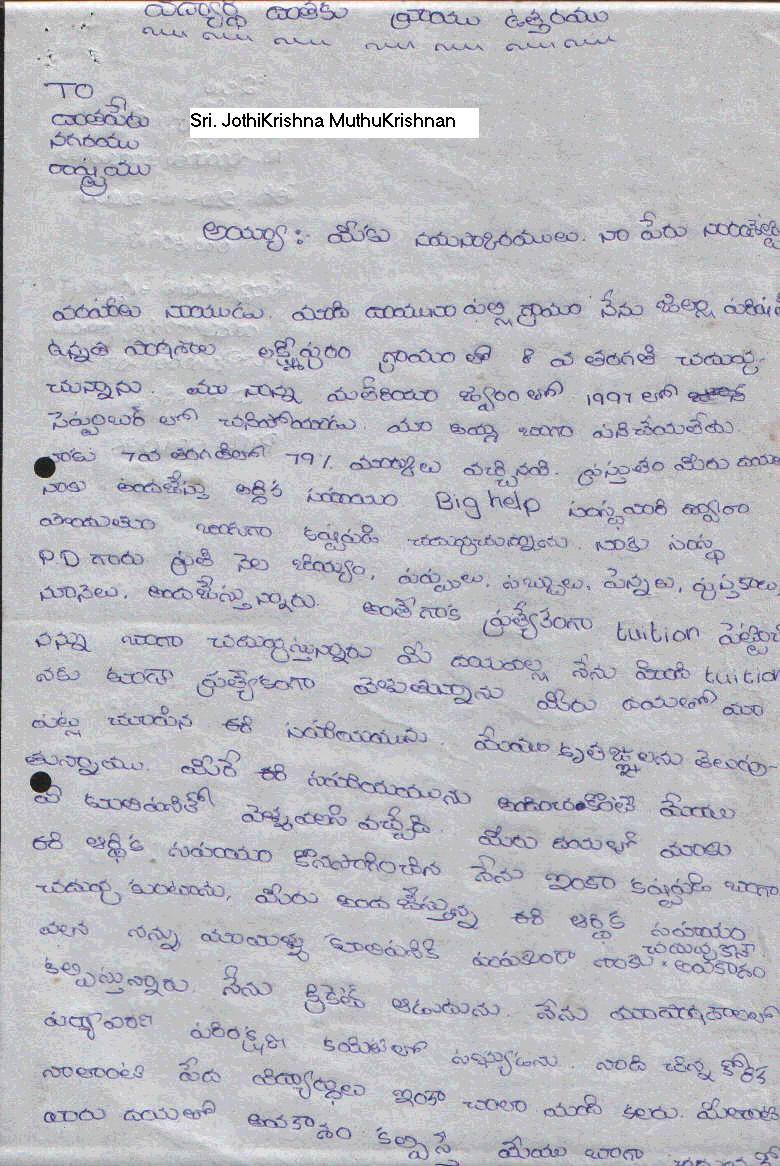 విద్యార్థి దాతకు వ్రాయు ఉత్తరము
TO
దాతపేరు Sri. JothiKrishna MuthuKrishnan
నగరము
రాష్ట్రము
అయ్యా :- మీకు నమస్కారములు. నా పేరు
నాయుడు. మాది గ్రామం నేను జిల్లా పరిషత్
ఉన్నత పాఠశాల లక్ష్మీపురం గ్రామం లో 8 వ తరగతి చదువు
చున్నాను. మా నాన్న జ్వరంతో 1997 లో
సెప్టెంబర్ లో చనిపోయాడు. మా అమ్మ బాగా పనిచేయలేదు.
నాకు 7వ తరగతిలో 79% మార్కులు వచ్చినవి. ప్రస్తుతం మీరు దయతో
నాకు అందజేస్తున్న ఆర్థిక సహాయం Big help సంస్థవారి ద్వారా
పొందుతూ బాగుగా కష్టపడి చదువుచున్నాను. నాకు సంస్థ
P.D గారు ప్రతి నెల బియ్యం, పప్పులు, సబ్బులు, పెన్నులు, పుస్తకాలు
నూనెలు, అందజేస్తున్నారు. అంతేగాక ప్రత్యేకంగా tuition పెట్టించి
నన్ను బాగా చదువిస్తున్నారు మీ దయవల్ల నేను tuition
నకు కూడా ప్రత్యేకంగా మీరు దయతో మా
పట్ల చూపిన ఈ సహాయమును. మేము కృతజ్ఞలను తెలుపు-
తున్నాము. మీరే ఈ సహాయమును అందించకపోతే మేము
కూలిపనికి వెళ్ళవలసి వచ్చేది. మీరు దయతో మాకు
ఈ ఆర్థిక సహాయం కొనసాగించిన నేను ఇంకా కష్టపడి బాగా
చదువు కుంటాను, మీరు అంద జేస్తున్న ఈ ఆర్థిక సహాయం
వలన నన్ను మాయమ్మ కూలిపనికి పంపకుండా నాకు చదువుకునే అవకాశం
కల్పిస్తున్నారు. నేను క్రికెట్ ఆడుదును. నేను మా పాఠశాలలో
పర్యావరణ పరిరక్షణ కమిటీలో సభ్యుడను. నాది చిన్న కోరిక
నాలాంటి పేద విద్యార్థులు ఇంకా చాలా మంది కలరు.
వారు దయతో అవకాశం కల్పిస్తే మేము బాగా